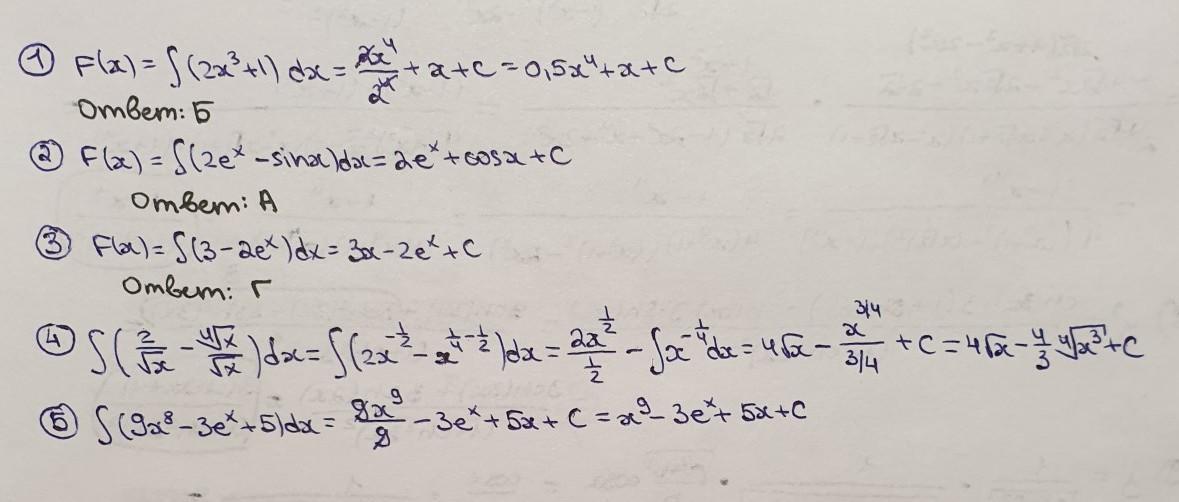 ① F(x) = ∫(2x³+1) dx = 2x⁴/4 + x + C = 0,5x⁴ + x + C
Ответ: Б
② F(x) = ∫(2eˣ - sinx)dx = 2eˣ + cosx + C
Ответ: А
③ F(x) = ∫(3 - 2eˣ)dx = 3x - 2eˣ + C
Ответ: Г
④ ∫(2/√x - ⁴√x/√x)dx = ∫(2x^(-1/2) - x^(1/4 - 1/2))dx = 2x^(1/2)/(1/2) - ∫x^(-1/4)dx = 4√x - x^(3/4)/(3/4) + C = 4√x - 4/3 ⁴√x³ + C
⑤ ∫(9x⁸ - 3eˣ + 5)dx = 9x⁹/9 - 3eˣ + 5x + C = x⁹ - 3eˣ + 5x + C